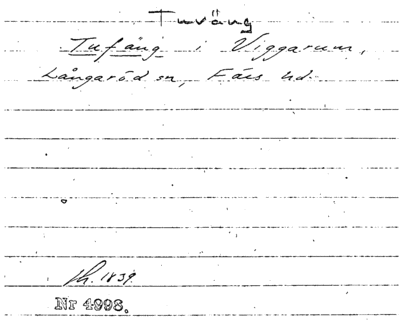 Tuväng
Tufäng i Viggarum,
Långaröd sn, Färs hd.
1839.
Nr 4998.